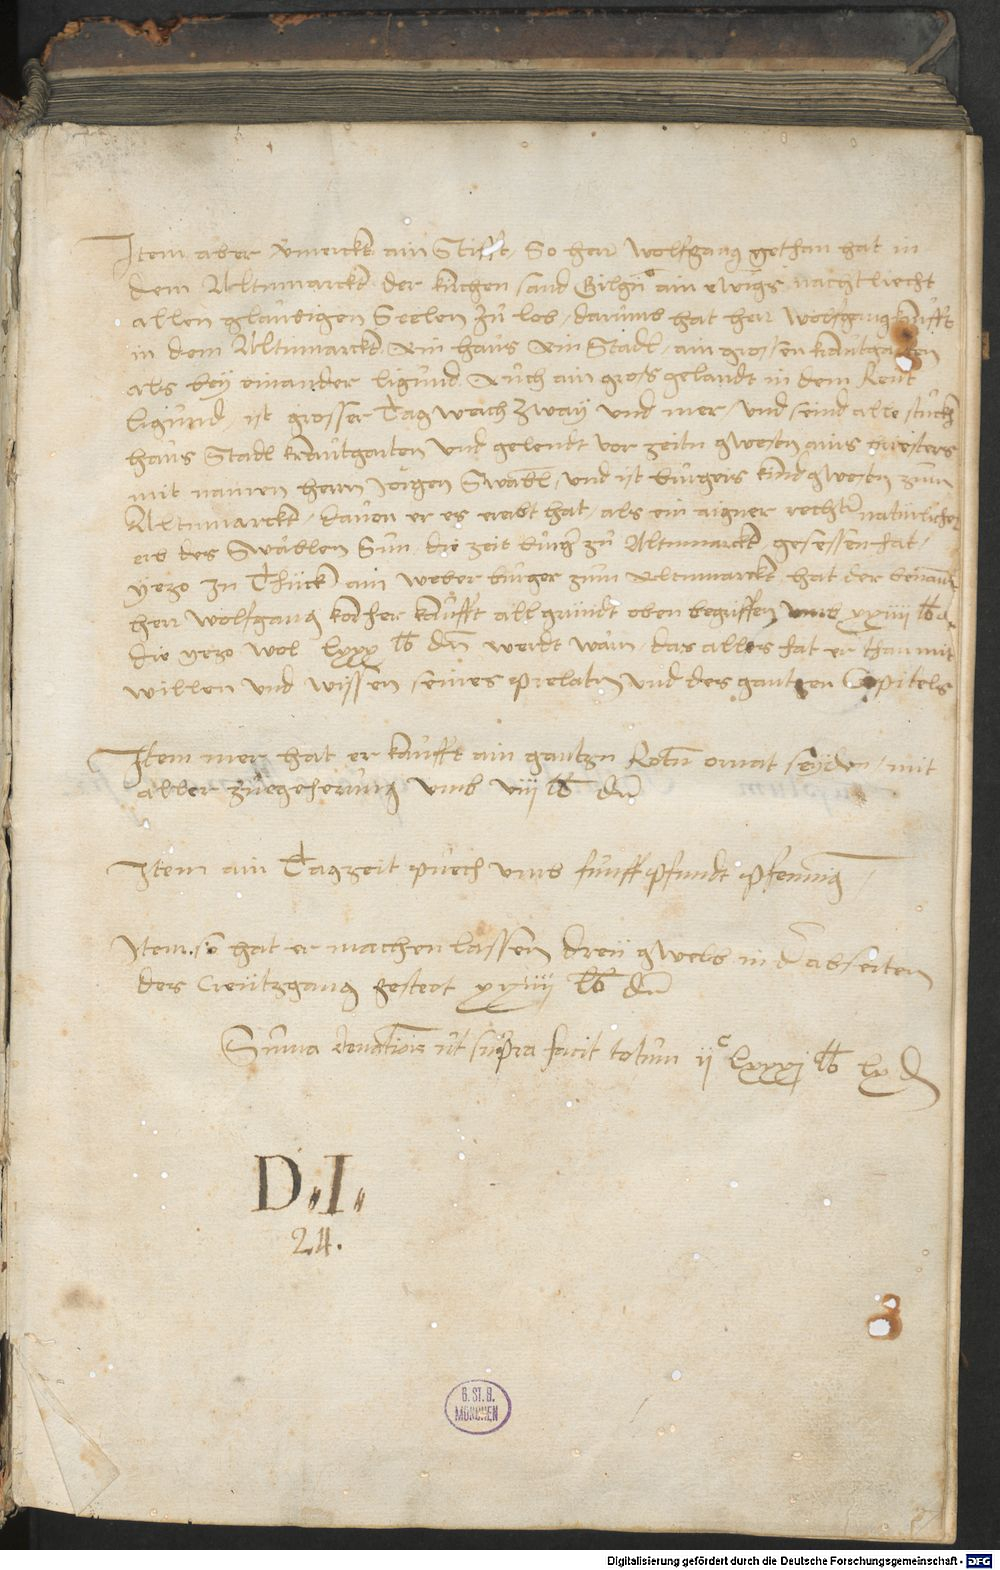 Item aber vermerckt ain Stifft, So herr Wolfgang gethan hat in
dem Altnmarckt der kirchen sand Gilgn ain ewigs nachtliecht
allen glaubigen Seelen zu lob, darumb hat herr Wolfgang kaufft
in dem Altnmarckt Ain haus Ain Stadl, ain grossen krautgarten
als bey einander ligund Auch ain gross gelandt in dem Reut
ligund, ist grosser Tagwerch Zway und mer, und seind alle stuckh
haus Stadl krautgarten und gelendt vor zeitn gwesen ains priesters
mit namen herrn Jorgen Swabl, und ist burgers kind gwesen zum
Altnmarckt, davon er es ererbt hat, als ein aigner rechter natürlicher
erb des Swablen Sun, die zeit burger zu Altnmarckt gesessen hat,
yezo In Thück ain weber burger zum Altnmarckt, hat der benannt
herr Wolfgang korher kaufft all gründt oben begriffen umb xxiiii lb d
die yezo wol lxxx lb dn werdt warn, das alles hat er than mit
willen und wissen seines prelatn und des gantzen Capitels
Item mer hat er kaufft ain gantzn Rotn ornat seyden, mit
aller zuegeherung umb viij lb dn
Item ain Tagzeit puech umb funff pfundt pfenning
Item so hat er machen lassen drey gwelb in der abseiten
des Creützgang gesteet xxiiij lb dn
Suma donationis ut supra facit totum ij c lxxxj lb lx d
D. I.
24.
B. ST. B.
MÜNCHEN
Digitalisierung gefördert durch die Deutsche Forschungsgemeinschaft - DFG